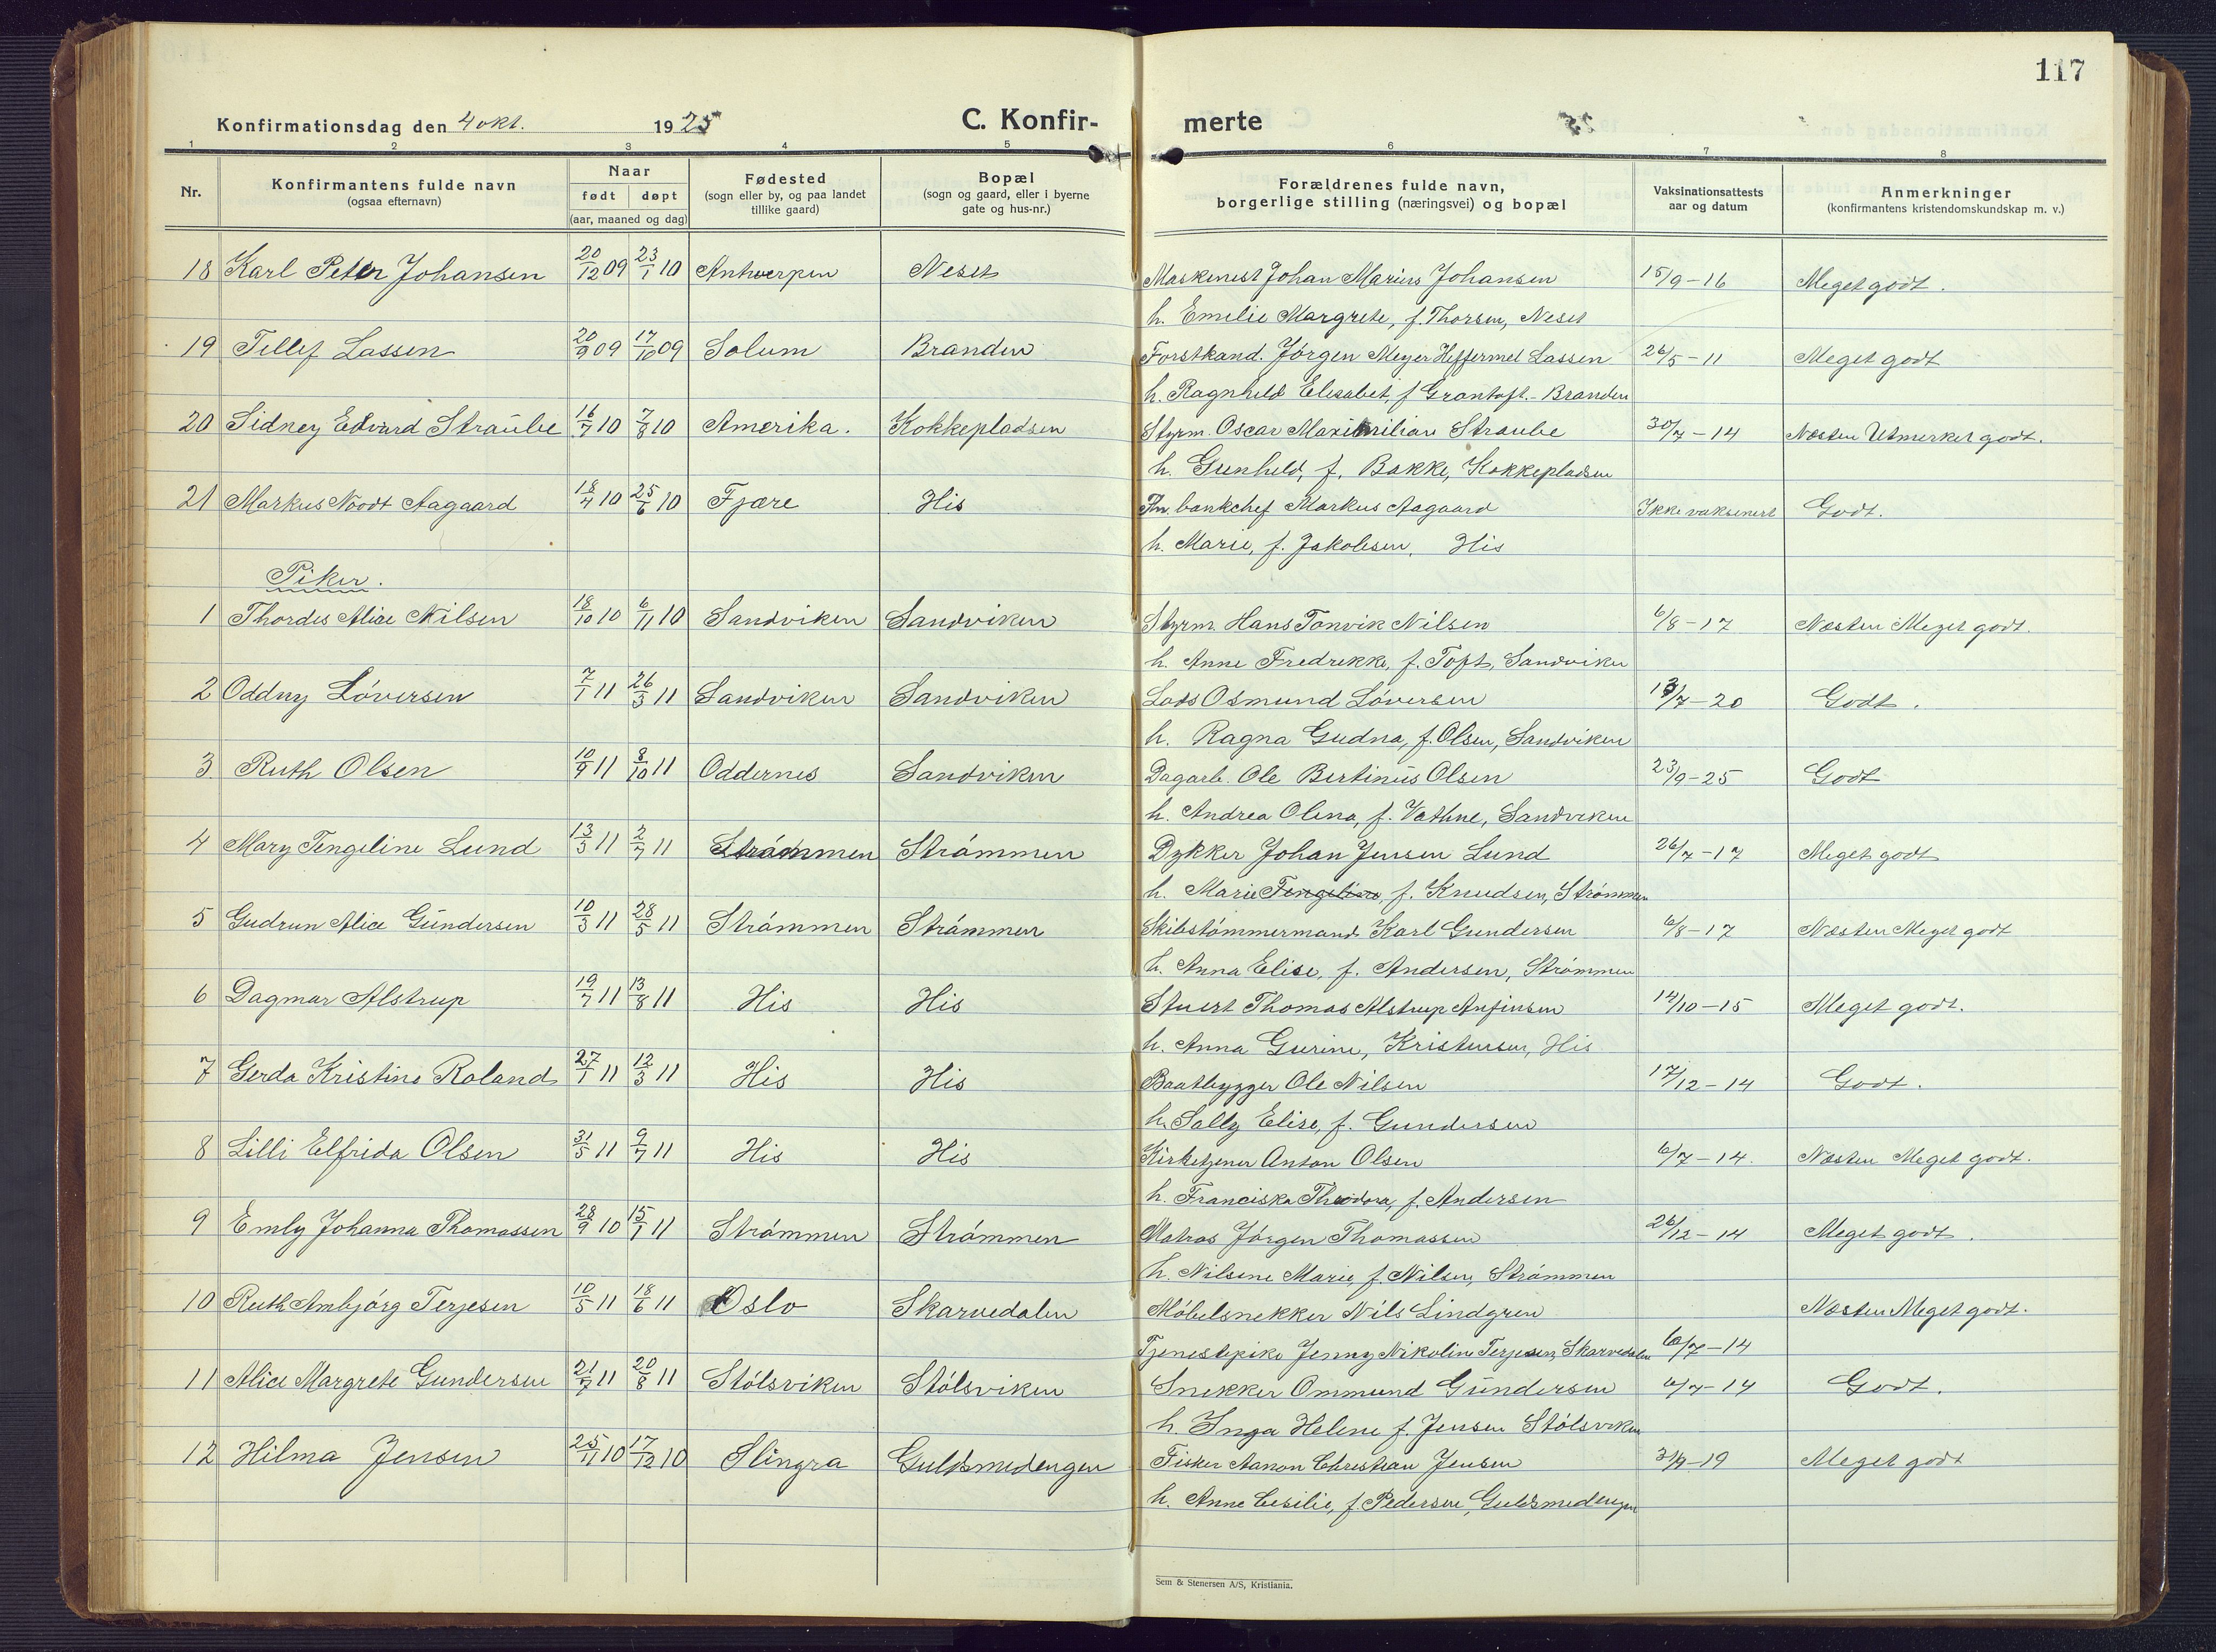 117
Konfirmationsdag den 4 okt. 1925 C. Konfir- merte
1 2 3 4 5 6 7 8
Nr. Konfirmantens fulde navn (ogsaa efternavn) Naar født døpt (aar, maaned og dag) Fødested (sogn eller by, og paa landet tillike gaard) Bopæl (sogn og gaard, eller i byerne gate og hus-nr.) Forældrenes fulde navn, borgerlige stilling (næringsvei) og bopæl Vaksinationsattests aar og datum Anmerkninger (konfirmantens kristendomskundskap m. v.)
18 Karl Peter Johansen 20/12 09 23/1 10 Antwerpen Neset Maskenist Johan Marius Johansen 15/9-16 Meget godt.
h. Emelie Margrete, f. Thorsen, Neset
19 Tellef Lassen 20/9 09 17/10 09 Solum Branden Forstkand. Jörgen Meyer Heffermel Lassen 26/5-11 Meget godt
h. Ragnhild Elisabet, f. Grantoft.- Branden
20 Sidney Edvard Straube 16/7 10 7/8 10 Amerika. Kokkepladsen Styrm. Oscar Maximilian Straube 30/7-14 Næsten Utmerket godt.
h. Gunhild, f. Bakke, Kokkepladsen
21 Markus Noodt Aagaard 18/4 10 25/6 10 Fjære His Fhv. bankchef Markus Aagaard Ikke vaksinert Godt.
h. Marie, f. Jakobsen, His
Piker.
1 Thordis Alice Nilsen 18/10 10 6/11 10 Sandviken Sandviken Styrm. Hans Tonvik Nilsen 6/8-17 Næsten Meget godt.
h. Anne Fredrekke, f. Toft, Sandviken
2 Oddny Löversen 7/1 11 26/3 11 Sandviken Sandviken Lods Osmund Löversen 13/7-20 Godt.
h. Ragna Gudna, f. Olsen, Sandviken
3 Ruth Olsen 10/9 11 8/10 11 Oddernes Sandviken Dagarb. Ole Bertinius Olsen 23/9-25 Godt
h. Andrea Olena, f. Vathne, Sandviken
4 Mary Tengeline Lund 13/3 11 2/7 11 Strömmen Strömmen Dykker Johan Jensen Lund 26/7-17 Meget godt
h. Marie Tengeline, f. Knudsen, Strömmen
5 Gudrun Alice Gundersen 10/3 11 28/5 11 Strömmen Strömmen Skibstömmermand Karl Gundersen 6/8-17 Næsten Meget godt
h. Anna Elise, f. Andersen, Strömmen
6 Dagmar Alstrup 19/7 11 13/8 11 His His Stuert Thomas Alstrup Anfinsen 14/10-15 Meget godt.
h. Anna Gurine, Kristensen, His
7 Gerda Kristine Roland 27/1 11 12/3 11 His His Baatbygger Ole Nilsen 17/12-14 Godt.
h. Sally Elise, f. Gundersen
8 Lilli Elfrida Olsen 31/5 11 9/7 11 His His Kirketjener Anton Olsen 6/7-14. Næsten Meget godt.
h. Franciska Theodora, f. Andersen
9 Emly Johanna Thomassen 28/9 10 15/1 11 Strömmen Strömmen Matros Jörgen Thomassen 26/12-14 Meget godt.
h. Nilsine Marie, f. Nilsen, Strömmen
10 Ruth Ambjörg Terjesen 10/5 11 18/6 11 Oslo Skarvedalen Möbelsnekker Nils Lindgren Næsten Meget godt.
Tjenestepike Jenny Nikoline Terjesen, Skarvedalen 6/7-14
11 Alice Margrete Gundersen 21/7 11 20/8 11 Stölsviken Stölsviken Snekker Ommund Gundersen 6/7-14 Godt.
h. Inga Helene f. Jensen Stölsviken
12 Hilma Jensen 25/11 10 17/12 10 Slingra Guldsmedengen Fisker Aanon Christian Jensen -19 Meget godt
h. Anne Cesilie, f. Pedersen, Guldsmedengen
Sem & Stenersen A/S, Kristiania.